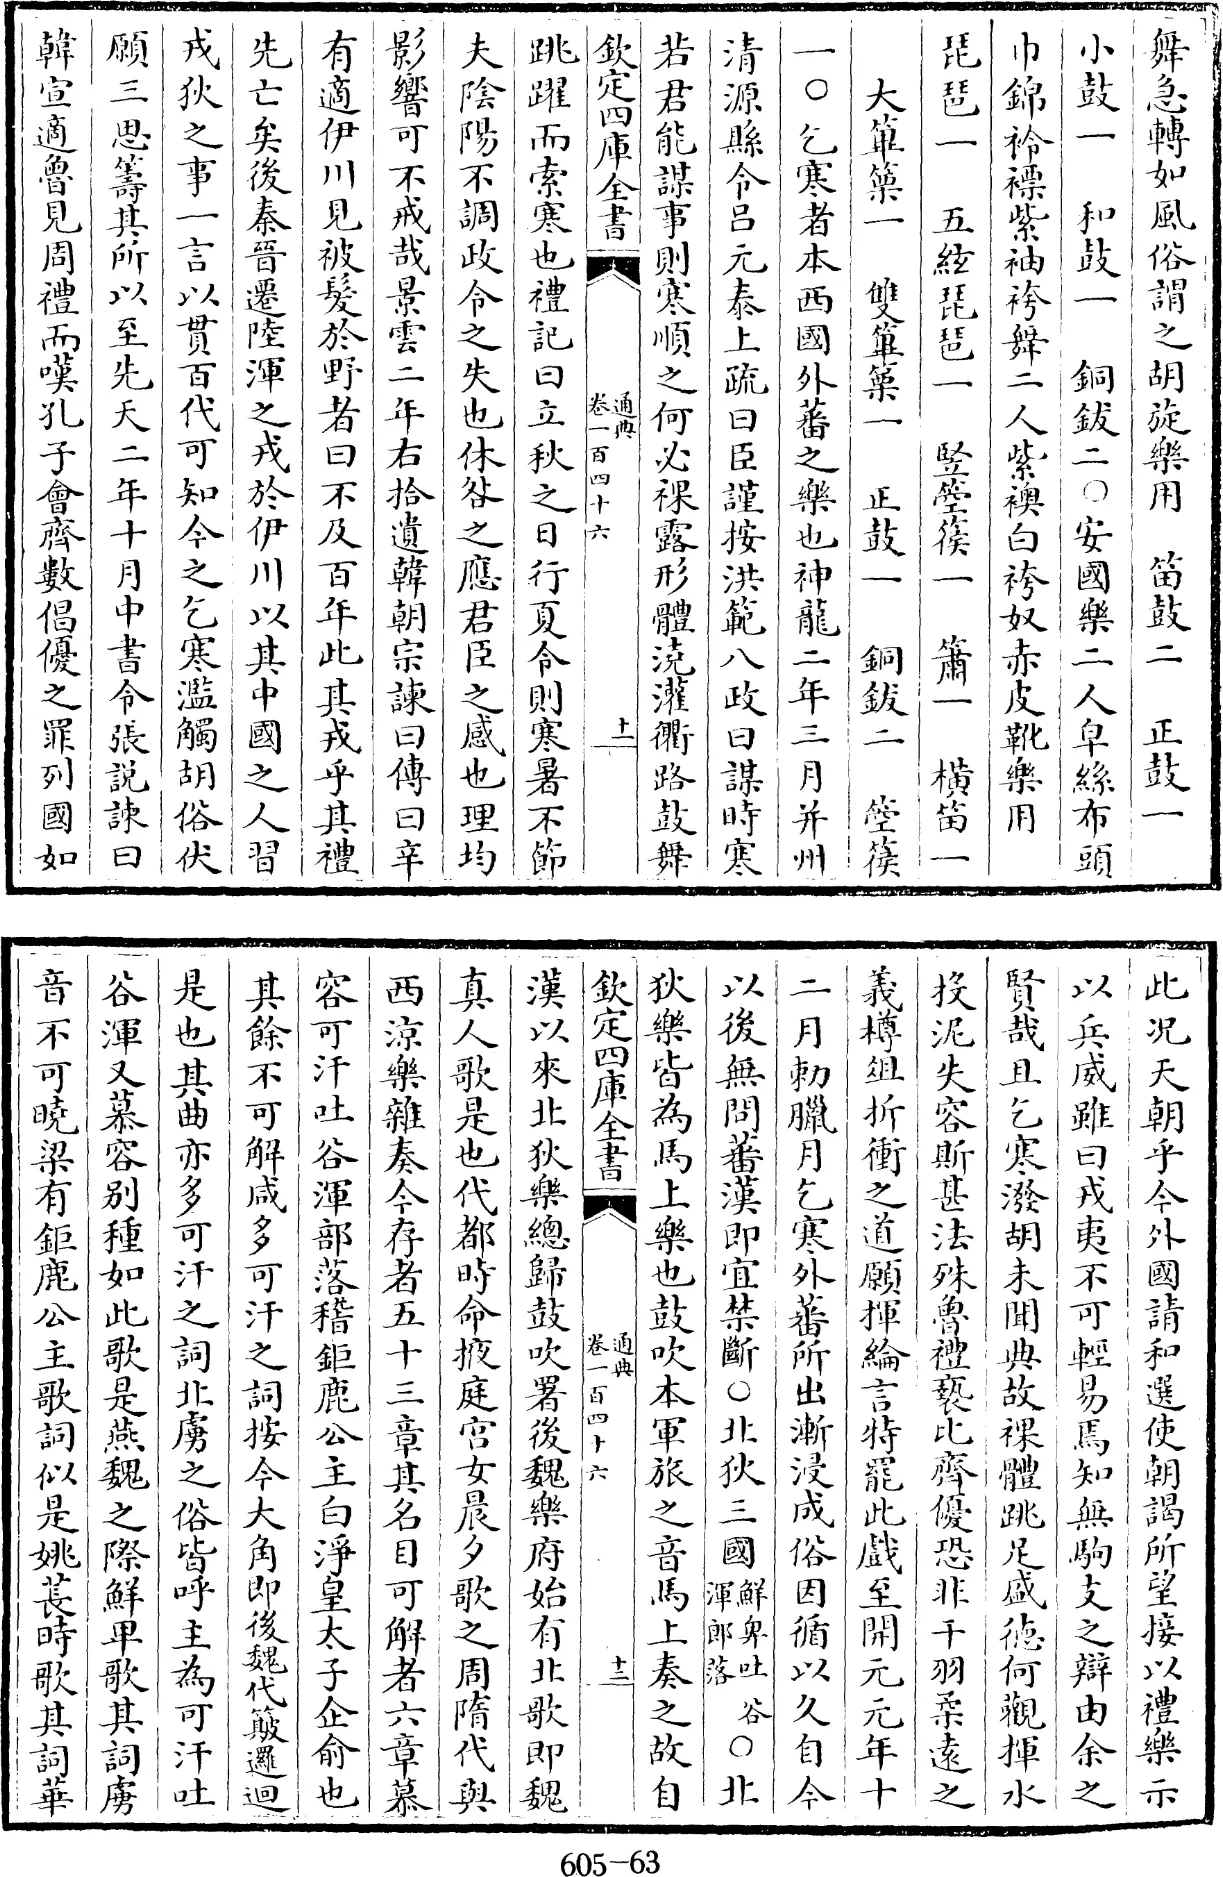 舞急轉如風俗謂之胡旋樂用　笛鼓二　正鼓一
小鼓一　和鼓一　銅鈸二〇安國樂二人皁絲布頭
巾錦衿褾紫袖袴舞二人紫襖白袴奴赤皮靴樂用
琵琶一　五絃琵琶一　竪箜篌一　簫一　橫笛一
大篳篥一　雙篳篥一　正鼓一　銅鈸二　箜篌
一〇乞寒者本西國外蕃之樂也神龍二年三月并州
清源縣令呂元泰上疏曰臣謹按洪範八政曰謀時寒
若君能謀事則寒順之何必裸露形體澆灌衢路鼓舞
欽定四庫全書　通典卷一百四十六　十一
跳躍而索寒也禮記曰立秋之日行夏令則寒暑不節
夫陰陽不調政令之失也休咎之應君臣之感也理均
影響可不戒哉景雲二年右拾遺韓朝宗諫曰傳曰辛
有適伊川見被髮於野者曰不及百年此其戎乎其禮
先亡矣後秦晉遷陸渾之戎於伊川以其中國之人習
戎狄之事一言以貫百代可知今之乞寒濫觴胡俗伏
願三思籌其所以至先天二年十月中書令張説諫曰
韓宣適魯見周禮而嘆孔子會齊數倡優之罪列國如
此况天朝乎今外國請和選使朝謁所望接以禮樂示
以兵威雖曰戎夷不可輕易焉知無駒支之辯由余之
賢哉且乞寒潑胡未聞典故裸體跳足盛德何觀揮水
投泥失容斯甚法殊魯禮褻比齊優恐非干羽柔遠之
義樽俎折衝之道願揮綸言特罷此戲至開元元年十
二月勑臘月乞寒外蕃所出漸浸成俗因循以久自今
以後無問蕃漢即宜禁斷〇北狄三國鮮卑吐谷渾郎落〇北
狄樂皆為馬上樂也鼓吹本軍旅之音馬上奏之故自
欽定四庫全書　通典卷一百四十六　十二
漢以來北狄樂總歸鼓吹署後魏樂府始有北歌即魏
真人歌是也代都時命掖庭宫女晨夕歌之周隋代與
西涼樂雜奏今存者五十三章其名目可解者六章慕
容可汗吐谷渾部落稽鉅鹿公主白淨皇太子企俞也
其餘不可解咸多可汗之詞按今大角即後魏代簸邏迴
是也其曲亦多可汗之詞北虜之俗皆呼主為可汗吐
谷渾又慕容别種如此歌是燕魏之際鮮卑歌其詞虜
音不可曉梁有鉅鹿公主歌詞似是姚萇時歌其詞華
605-63